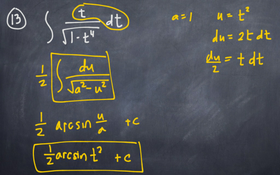 13 ∫ t/√(1-t⁴) dt
a=1 u=t²
du=2t dt
du/2 = t dt
1/2 ∫ du/√(a²-u²)
1/2 arcsin u/a +c
1/2 arcsin t² +c